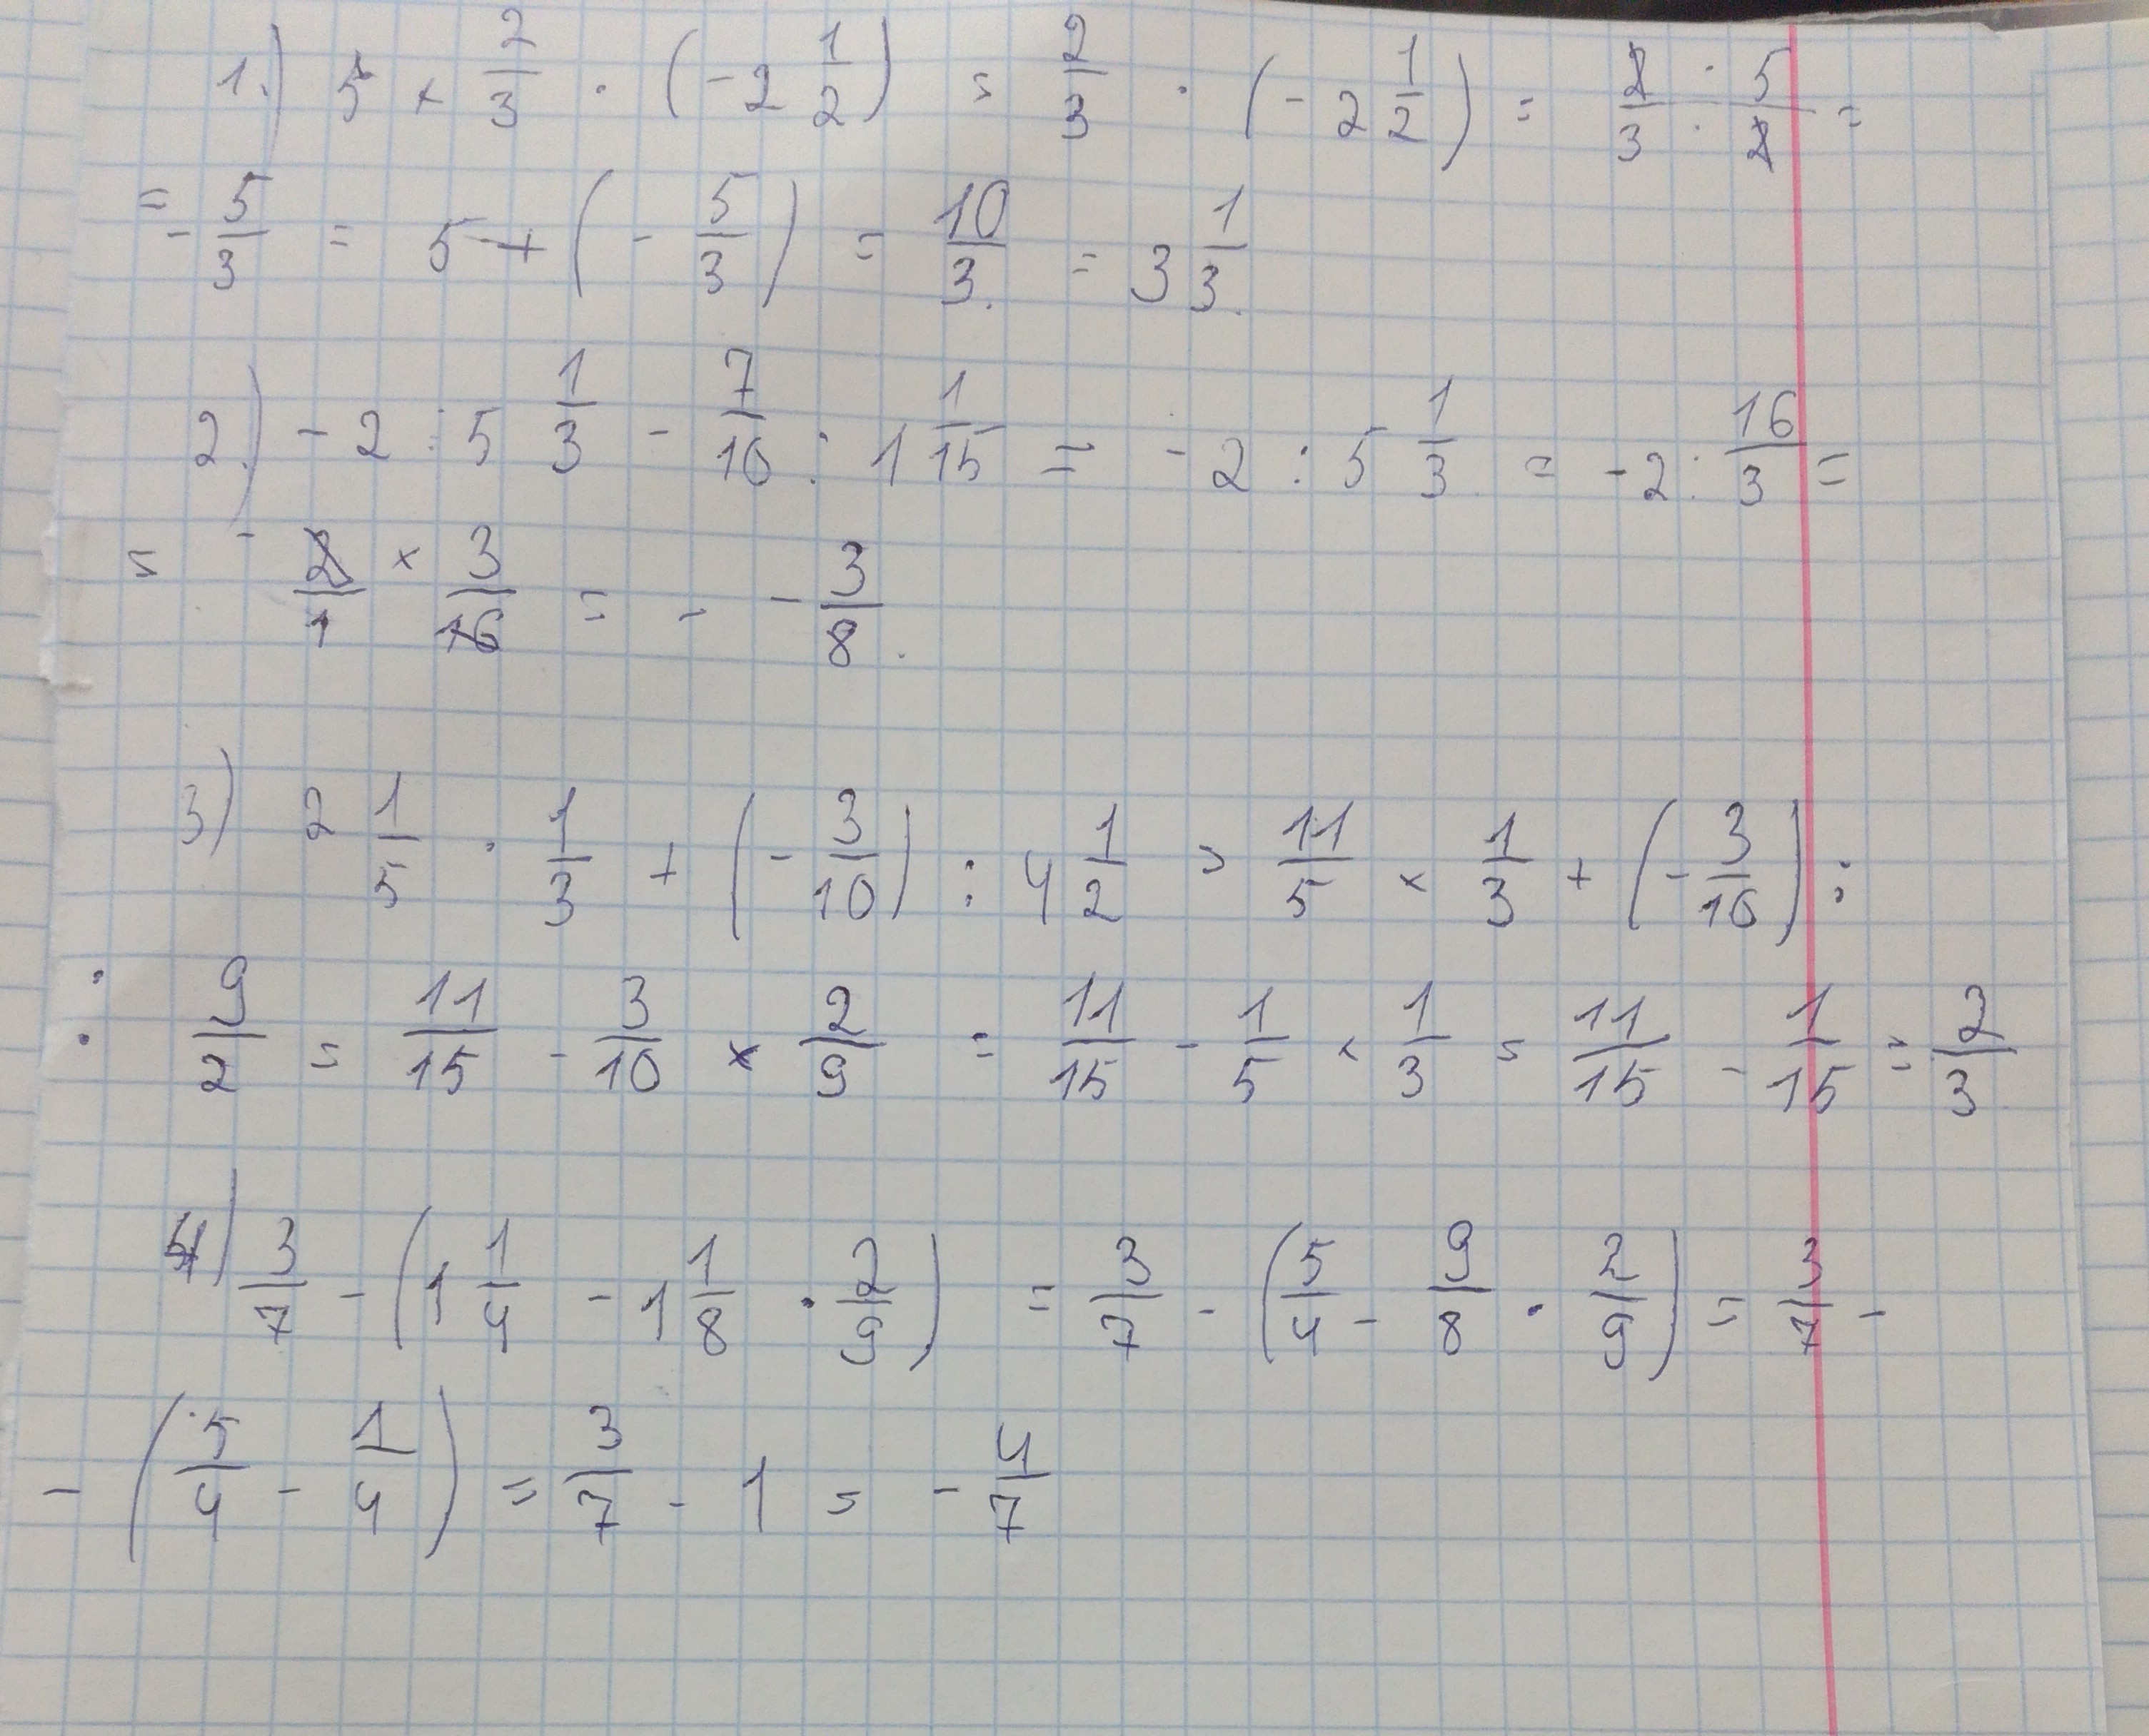 1.) 5 + 2/3 · (-2 1/2) = 2/3 · (-2 1/2) = 2/3 · 5/2 =
= - 5/3 = 5 + (- 5/3) = 10/3. = 3 1/3.
2.) - 2 : 5 1/3 - 7/10 : 1 1/15 = - 2 : 5 1/3 = -2 : 16/3 =
= - 2/1 × 3/16 = - - 3/8.
3) 2 1/5 · 1/3 + (- 3/10) : 4 1/2 = 11/5 × 1/3 + (- 3/10) :
: 9/2 = 11/15 - 3/10 × 2/9 = 11/15 - 1/5 × 1/3 = 11/15 - 1/15 = 2/3
4) 3/7 - (1 1/4 - 1 1/8 · 2/9) = 3/7 - (5/4 - 9/8 · 2/9) = 3/7 -
- (5/4 - 1/4) = 3/7 - 1 = - 4/7